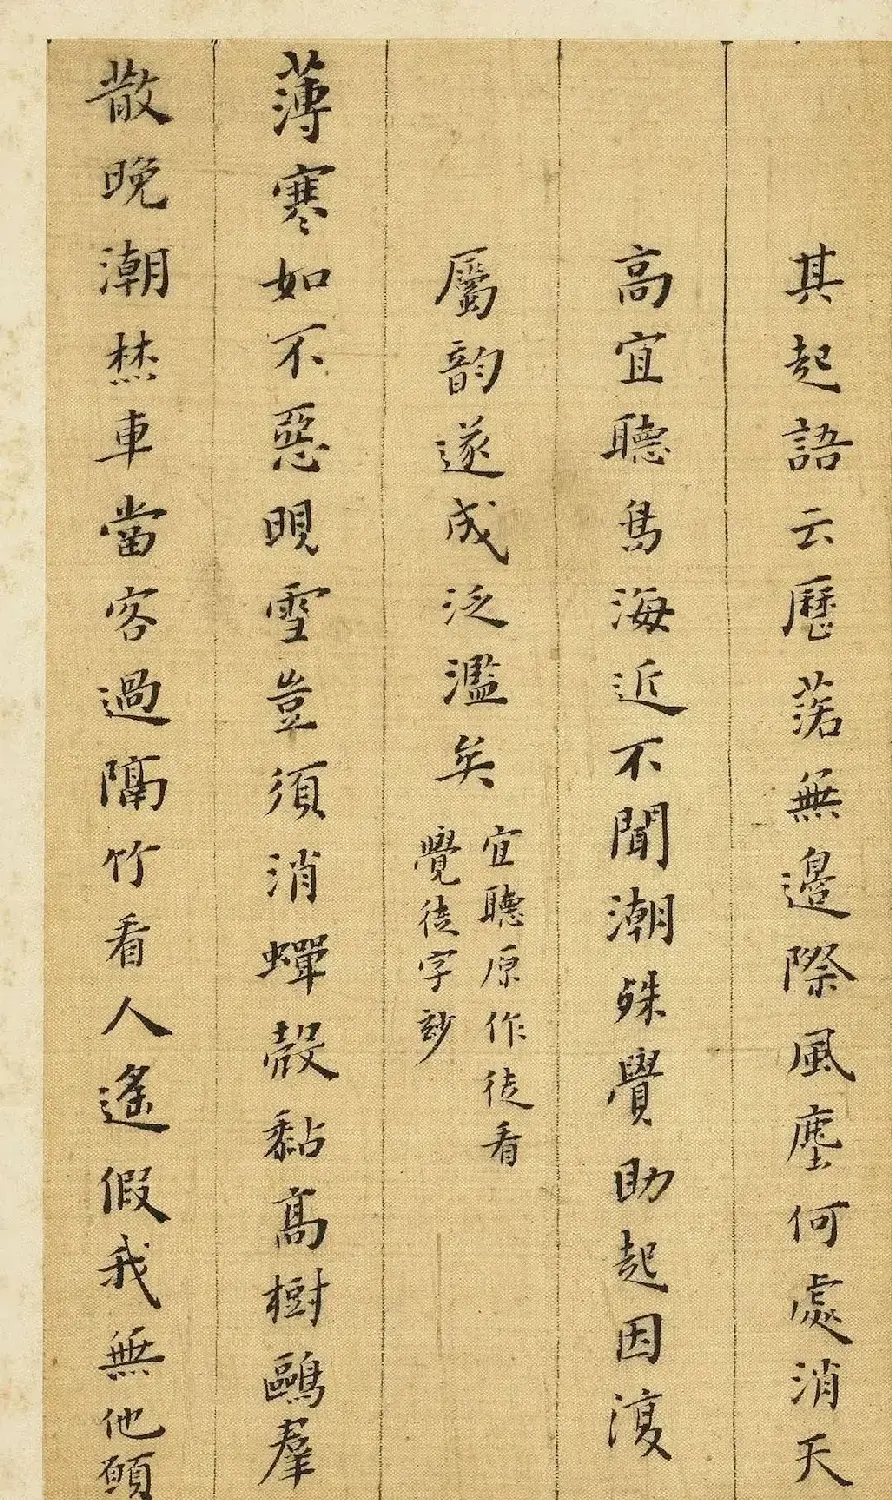 其起語云歷落無邊際風塵何處消天
高宜聽鳥海近不聞潮殊覺助起因復
屬韵遂成泛濫矣
宜聽原作徒看
覺徒字妙
薄寒如不惡晛雪豈須消蟬殼黏高樹鷗羣
散晚潮焚車當客過隔竹看人遙假我無他願